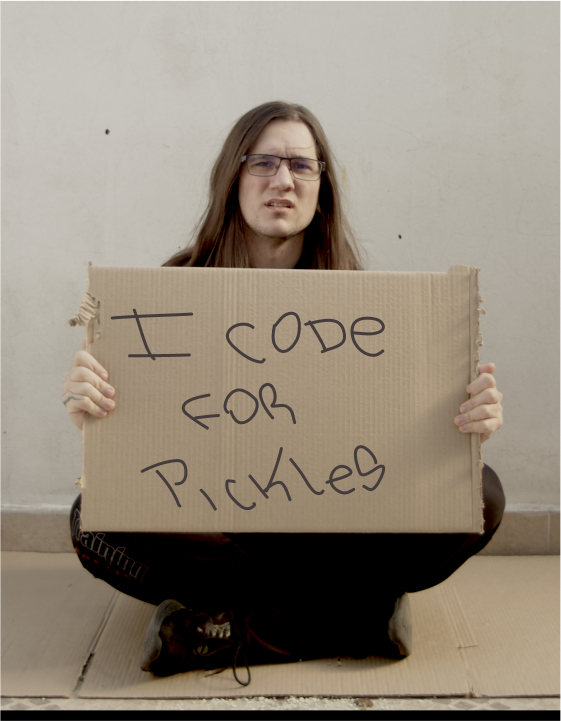 I CODE
FOR
PICKLES